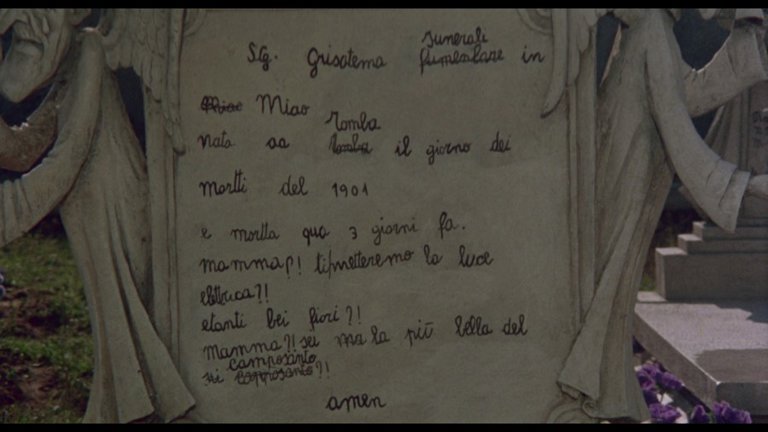 Sg. Grisotema funerali fumerlare in
Miao Miao
nata aa Romba il giorno dei
mortti del 1901
e mortta qua 3 giorni fa.
mamma?! timetteremo la luce
elettrica?!
etanti bei fiori?!
mamma?! sei ma la più bella del
camposanto
amen